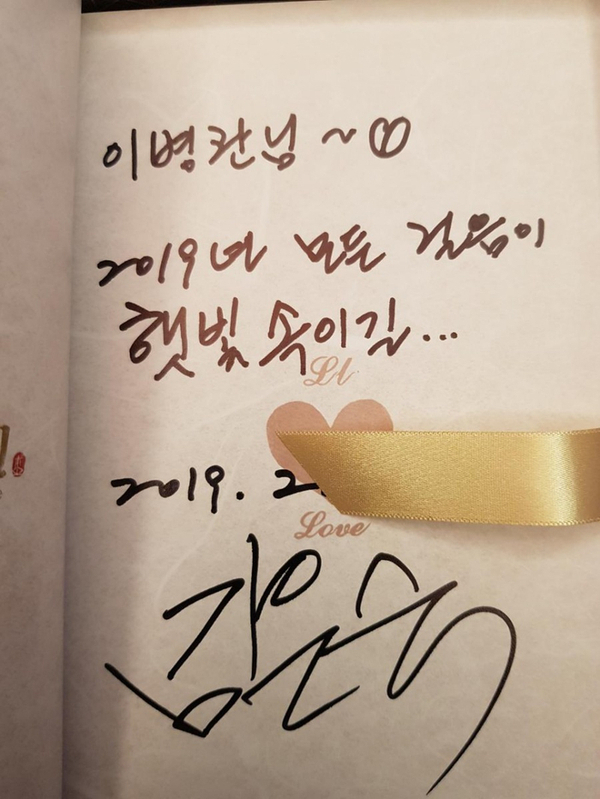 이병찬님 ~♡
2019년 모든 걸음이
햇빛 속이길...
Love
2019. 2
김은숙